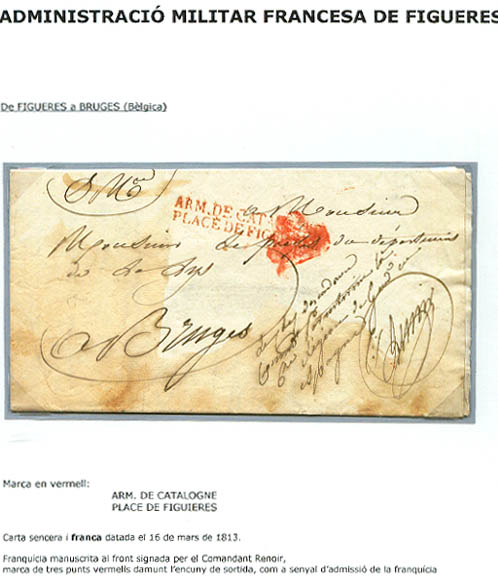 ADMINISTRACIÓ MILITAR FRANCESA DE FIGUERES
De FIGUERES a BRUGES (Bèlgica)
S. Mre
ARM. DE CATA
PLACE DE FIG
a Monsieur
Monsieur le préfet du départemens
de la Lys
a Bruges
Marca en vermell:
ARM. DE CATALOGNE
PLACE DE FIGUIERES
Carta sencera i franca datada el 16 de mars de 1813.
Franquicia manuscrita al front signada per el Comandant Renoir,
marca de tres punts vermells damunt l'encuny de sortida, com a senyal d'admissió de la franquícia